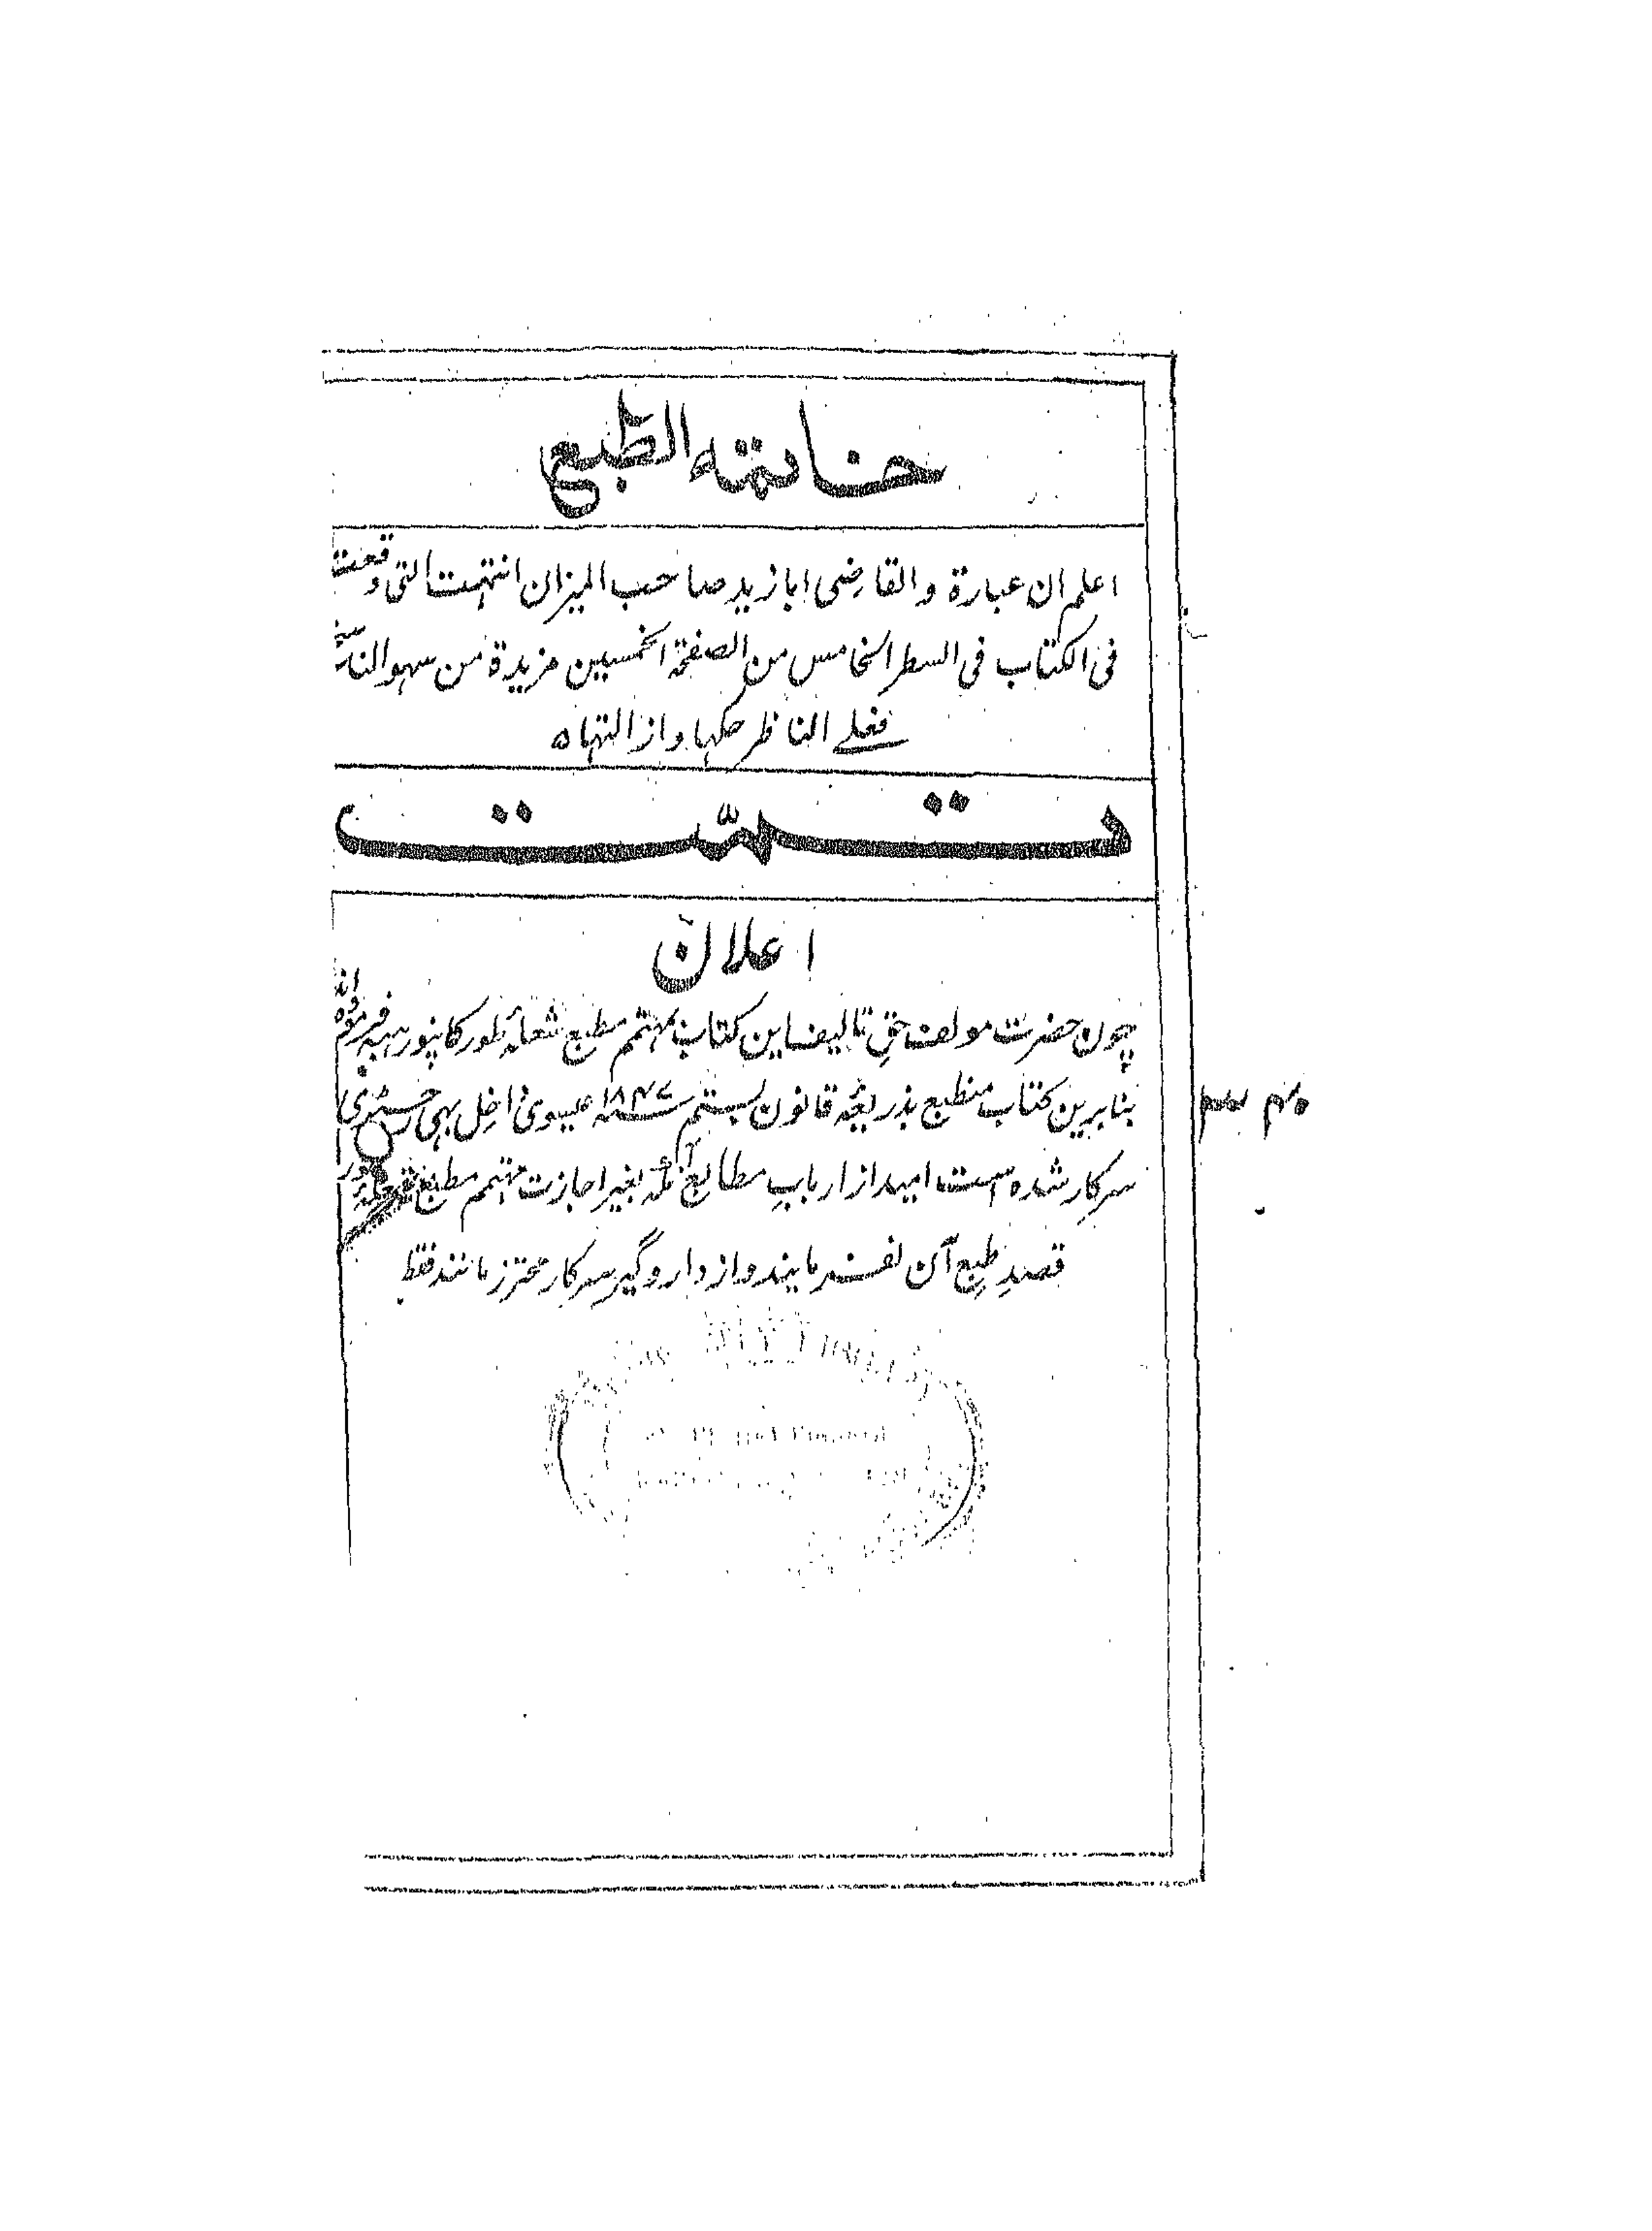 خاتمة الطبع
اعلم ان عبارة والقاضى ابا زيد صاحب الميزان انتهت التى وقعت
فى الكتاب فى السطر الخامس من الصفحة الخمسين مزيدة من سهو الناسخ
فعلے الناظر حكها وازالتها ہ
تمّت
اعلان
چون حضرت مولف حقِ تالیف این کتاب بمہتمم مطبع شعلۂ طور کانپور ہبہ فرمودہ اند
بنابرین کتاب منطبع بذریعۂ قانون بستم ۱۸۴۷ عیسوی داخل بہی رجسٹری
سرکار شدہ است امید از اربابِ مطابع آنکہ بغیر اجازت مہتمم مطبع شعلۂ طور
قصدِ طبعِ آن نفرمایند و از داروگیر سرکار محترز مانند فقط